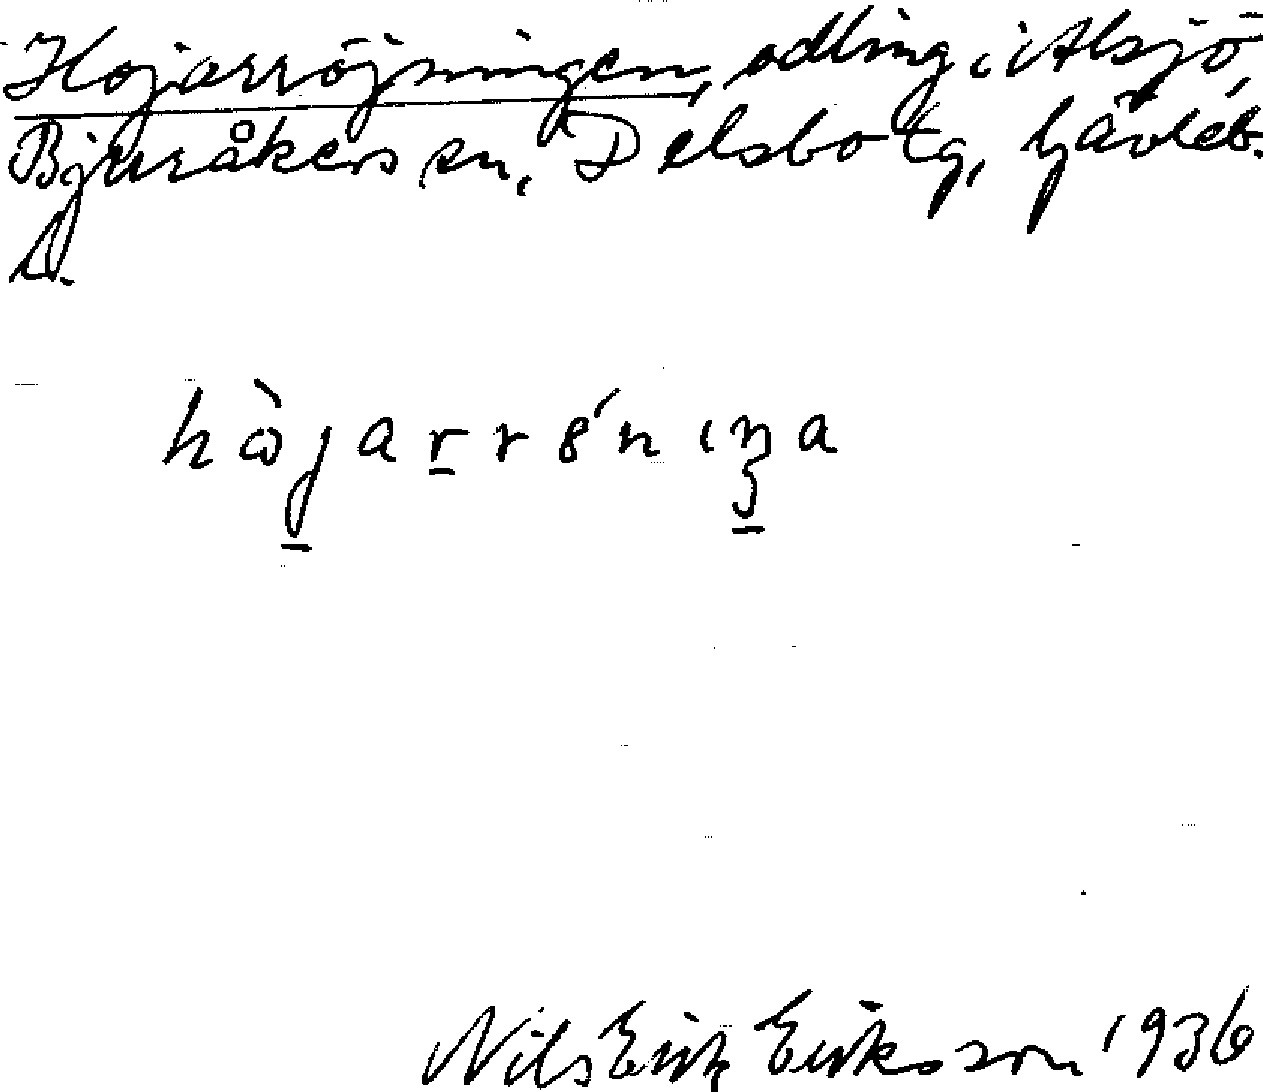 Hojarröjningen, odling i Alsjö,
Bjuråkers sn, Delsbo tg, Gävleb.
L.
hòjarrǿniŋa
Nils Erik Eriksson 1936